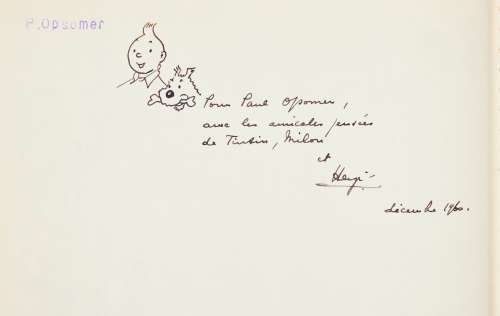 P. Opsomer
Pour Paul Opsomer,
avec les amicales pensées
de Tintin, Milou
et
Hergé
décembre 1960.